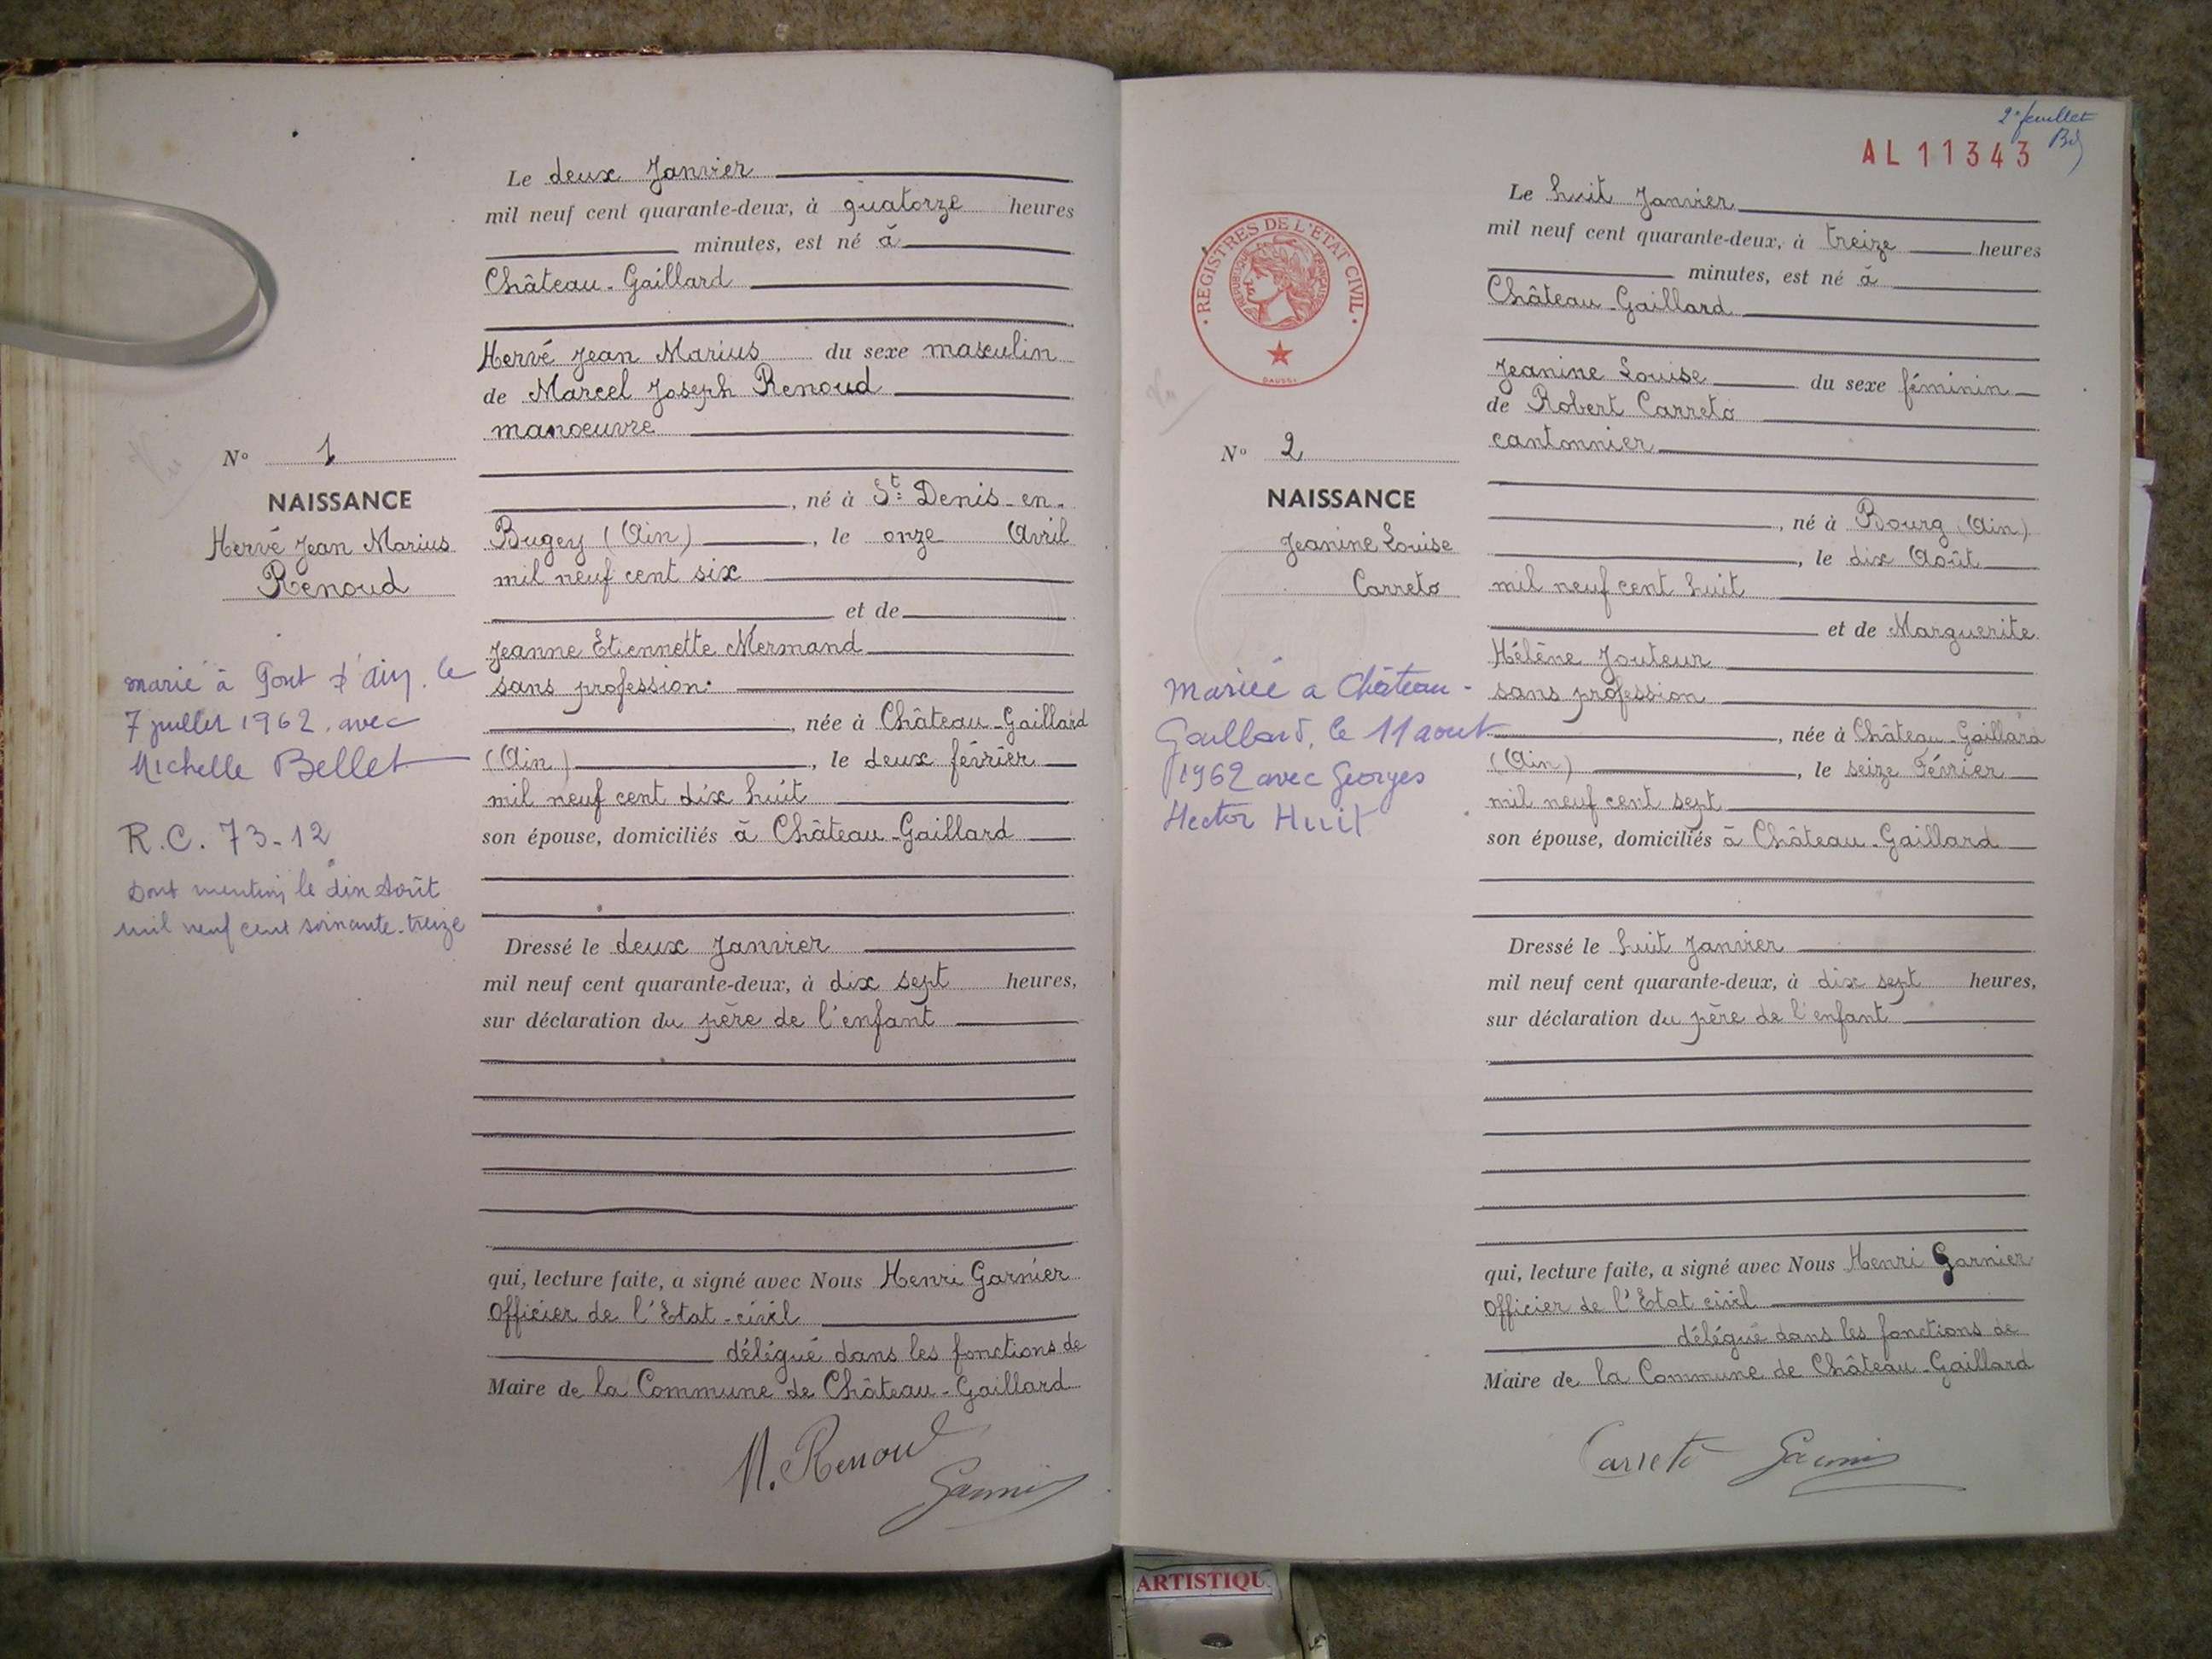 Le deux Janvier
mil neuf cent quarante-deux, à quatorze heures
minutes, est né à
Château-Gaillard
Hervé Jean Marius du sexe masculin
de Marcel Joseph Renoud
manoeuvre
N° 1
NAISSANCE
Hervé Jean Marius
Renoud
, né à St Denis-en-
Bugey (Ain), le onze Avril
mil neuf cent six
et de
Jeanne Etiennette Mermand
sans profession
, née à Château-Gaillard
(Ain), le deux février
mil neuf cent dix huit
son épouse, domiciliés à Château-Gaillard
marié à Pont d'Ain, le
7 juillet 1962, avec
Michelle Bellet
R.C. 73-12
Dont mention le dix Août
mil neuf cent soixante-treize
Dressé le deux Janvier
mil neuf cent quarante-deux, à dix sept heures,
sur déclaration du père de l'enfant
qui, lecture faite, a signé avec Nous Henri Garnier
Officier de l'Etat-civil
délégué dans les fonctions de
Maire de la Commune de Château-Gaillard
M. Renoud
Garnier
2e feuillet
AL 11343
REGISTRES DE L'ETAT CIVIL
REPUBLIQUE FRANÇAISE
Le huit Janvier
mil neuf cent quarante-deux, à treize heures
minutes, est né à
Château-Gaillard
Jeanine Louise du sexe féminin
de Robert Carreto
cantonnier
N° 2
NAISSANCE
Jeanine Louise
Carreto
, né à Bourg (Ain)
, le dix Août
mil neuf cent huit
et de Marguerite
Hélène Jouteur
sans profession
, née à Château-Gaillard
(Ain), le seize Février
mil neuf cent sept
son épouse, domiciliés à Château-Gaillard
Mariée a Château-
Gaillard, le 11 aout
1962 avec Georges
Hector Huit
Dressé le huit Janvier
mil neuf cent quarante-deux, à dix sept heures,
sur déclaration du père de l'enfant
qui, lecture faite, a signé avec Nous Henri Garnier
Officier de l'Etat civil
délégué dans les fonctions de
Maire de la Commune de Château-Gaillard
Carreto Garnier
ARTISTIQU